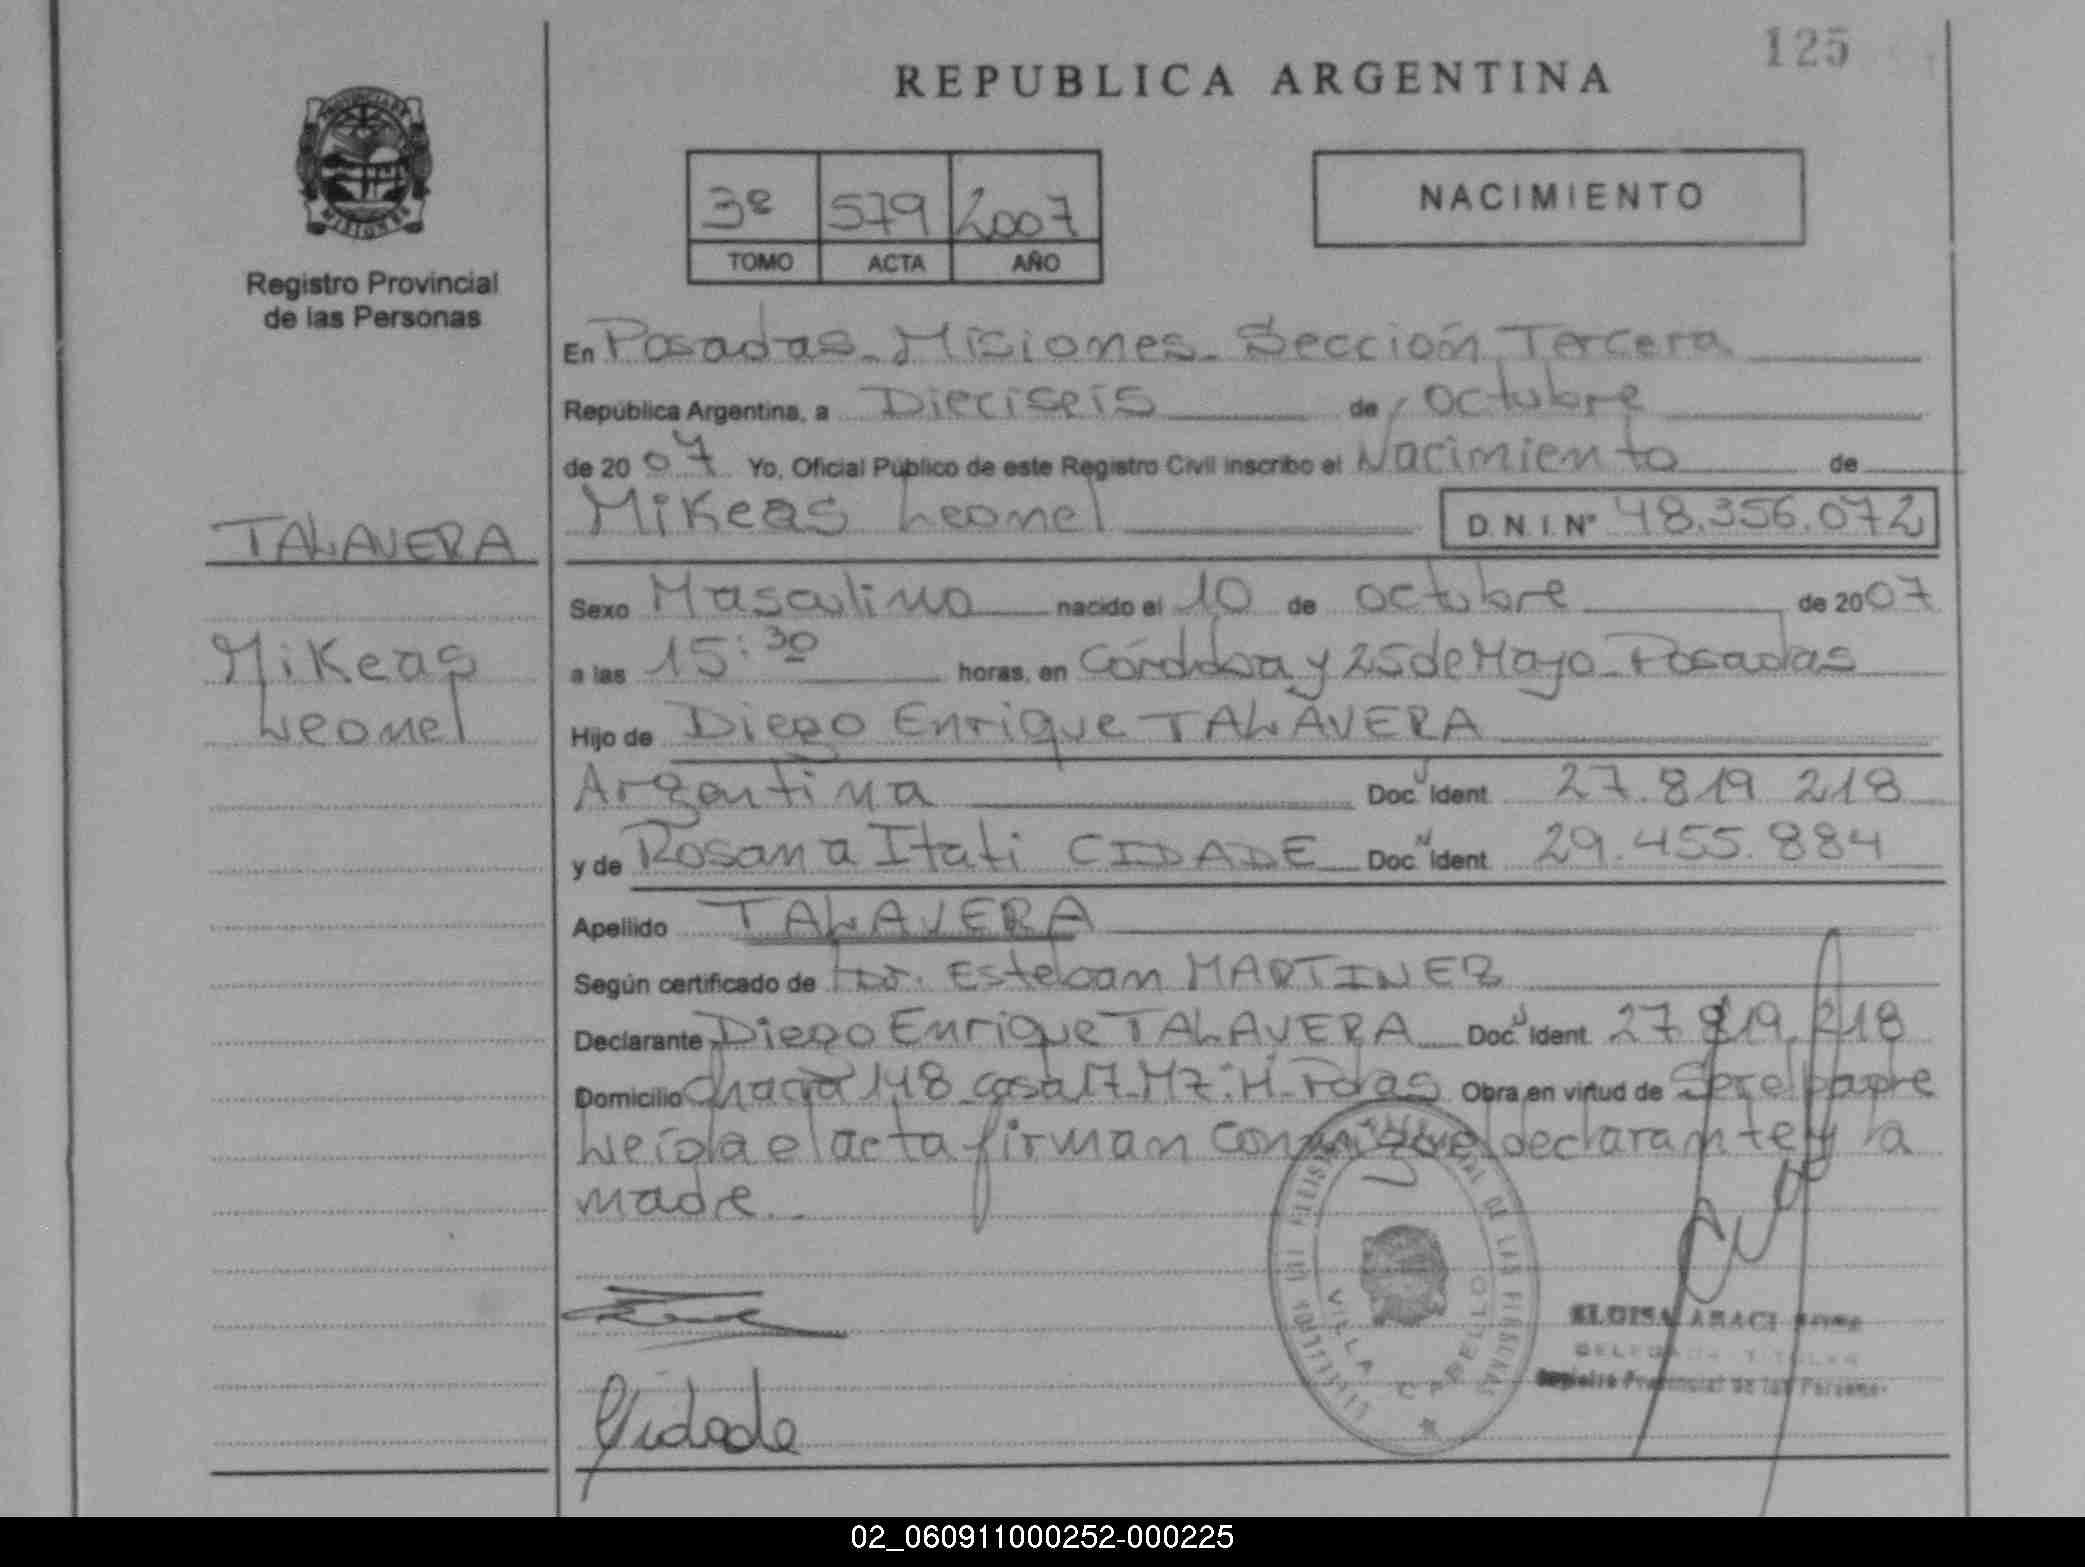 125
REPUBLICA ARGENTINA
PROVINCIA DE
MISIONES
Registro Provincial
de las Personas
3º 579 2007
TOMO ACTA AÑO
NACIMIENTO
En Posadas - Misiones - Sección Tercera
República Argentina, a Dieciseis de Octubre
de 20 07 Yo, Oficial Público de este Registro Civil inscribo el Nacimiento de
Mikeas Leonel D.N.I. Nº 48.356.072
TALAVERA
Mikeas
Leonel
Sexo Masculino nacido el 10 de octubre de 20 07
a las 15:30 horas, en Córdoba y 25 de Mayo - Posadas
Hijo de Diego Enrique TALAVERA
Argentina Doc. Ident. 27.819 218
y de Rosana Itati CIDADE Doc. Ident. 29.455.884
Apellido TALAVERA
Según certificado de Dr. Esteban MARTINEZ
Declarante Diego Enrique TALAVERA Doc. Ident. 27.819.218
Domicilio Chacra 148 casa 17 Mz: H. Pdas Obra en virtud de Ser el padre
Leída el acta firman conmigo el declarante y la
madre.
Cidade
VILLA CABELLO
DE LAS PERSONAS
ELOISA ARACI
DELEGADA TITULAR
Registro Provincial de las Personas
02_060911000252-000225